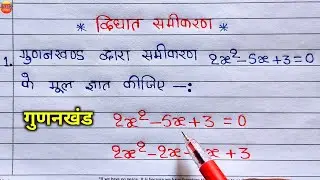 * द्विघात समीकरण *
1. गुणनखण्ड द्वारा समीकरण 2x²-5x+3=0
के मूल ज्ञात कीजिए -:
गुणनखंड 2x²-5x+3=0
2x²-2x- x+3